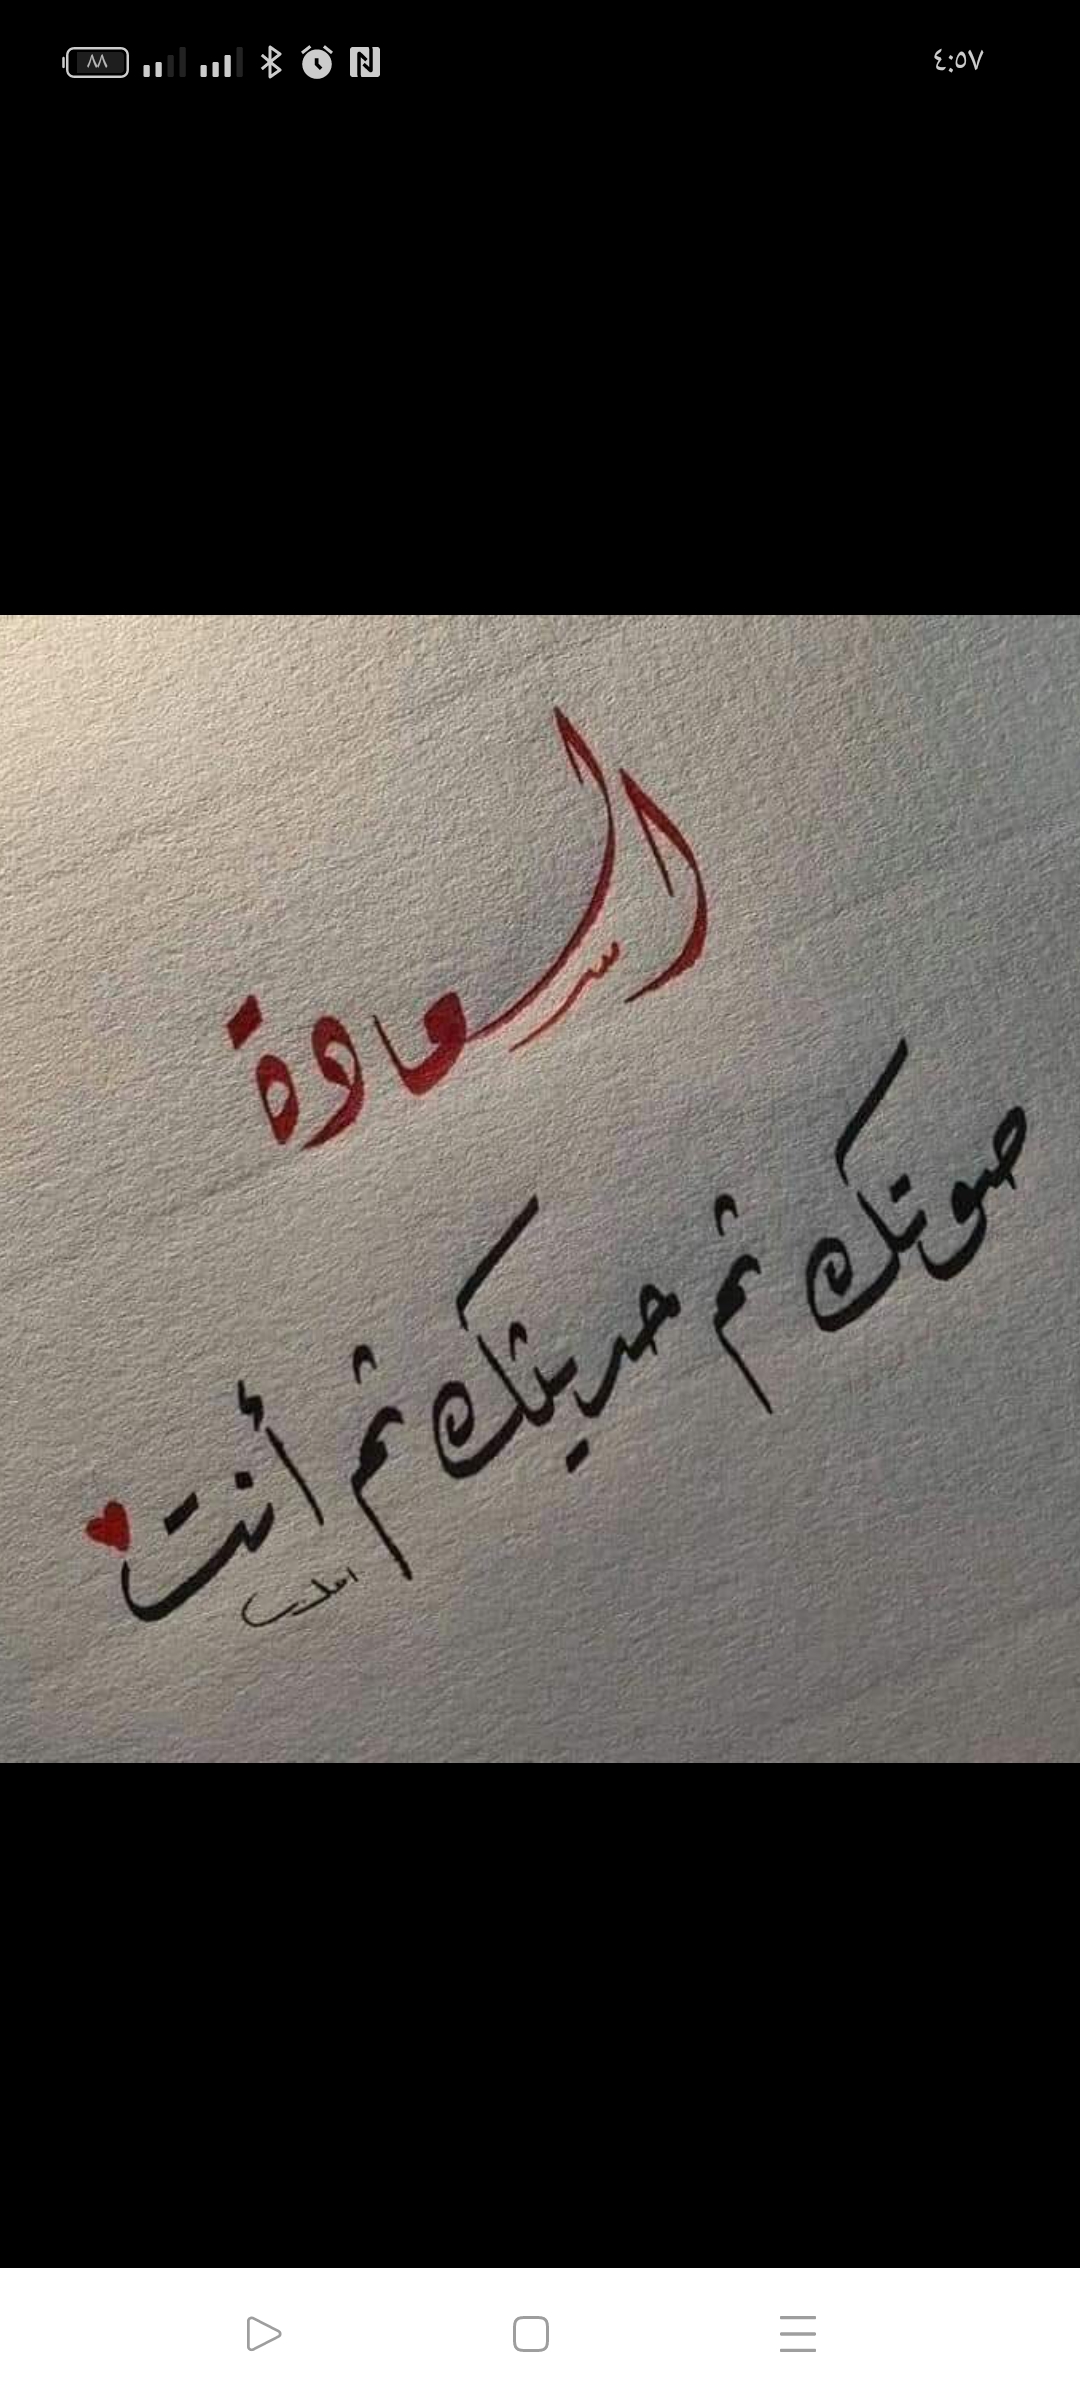 ٨٨
٤:٥٧
السعادة
صوتك ثم حديثك ثم أنت